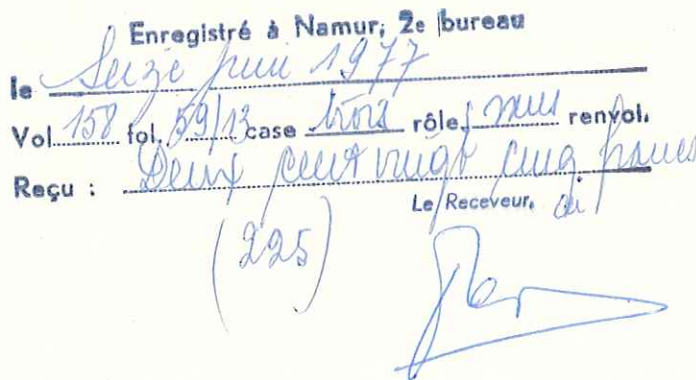 Enregistré à Namur, 2e bureau
le Seize juin 1977
Vol 158 fol. 59/13 case trois rôles renvoi.
Reçu : Deux cent vingt cinq francs
Le Receveur,
(225)